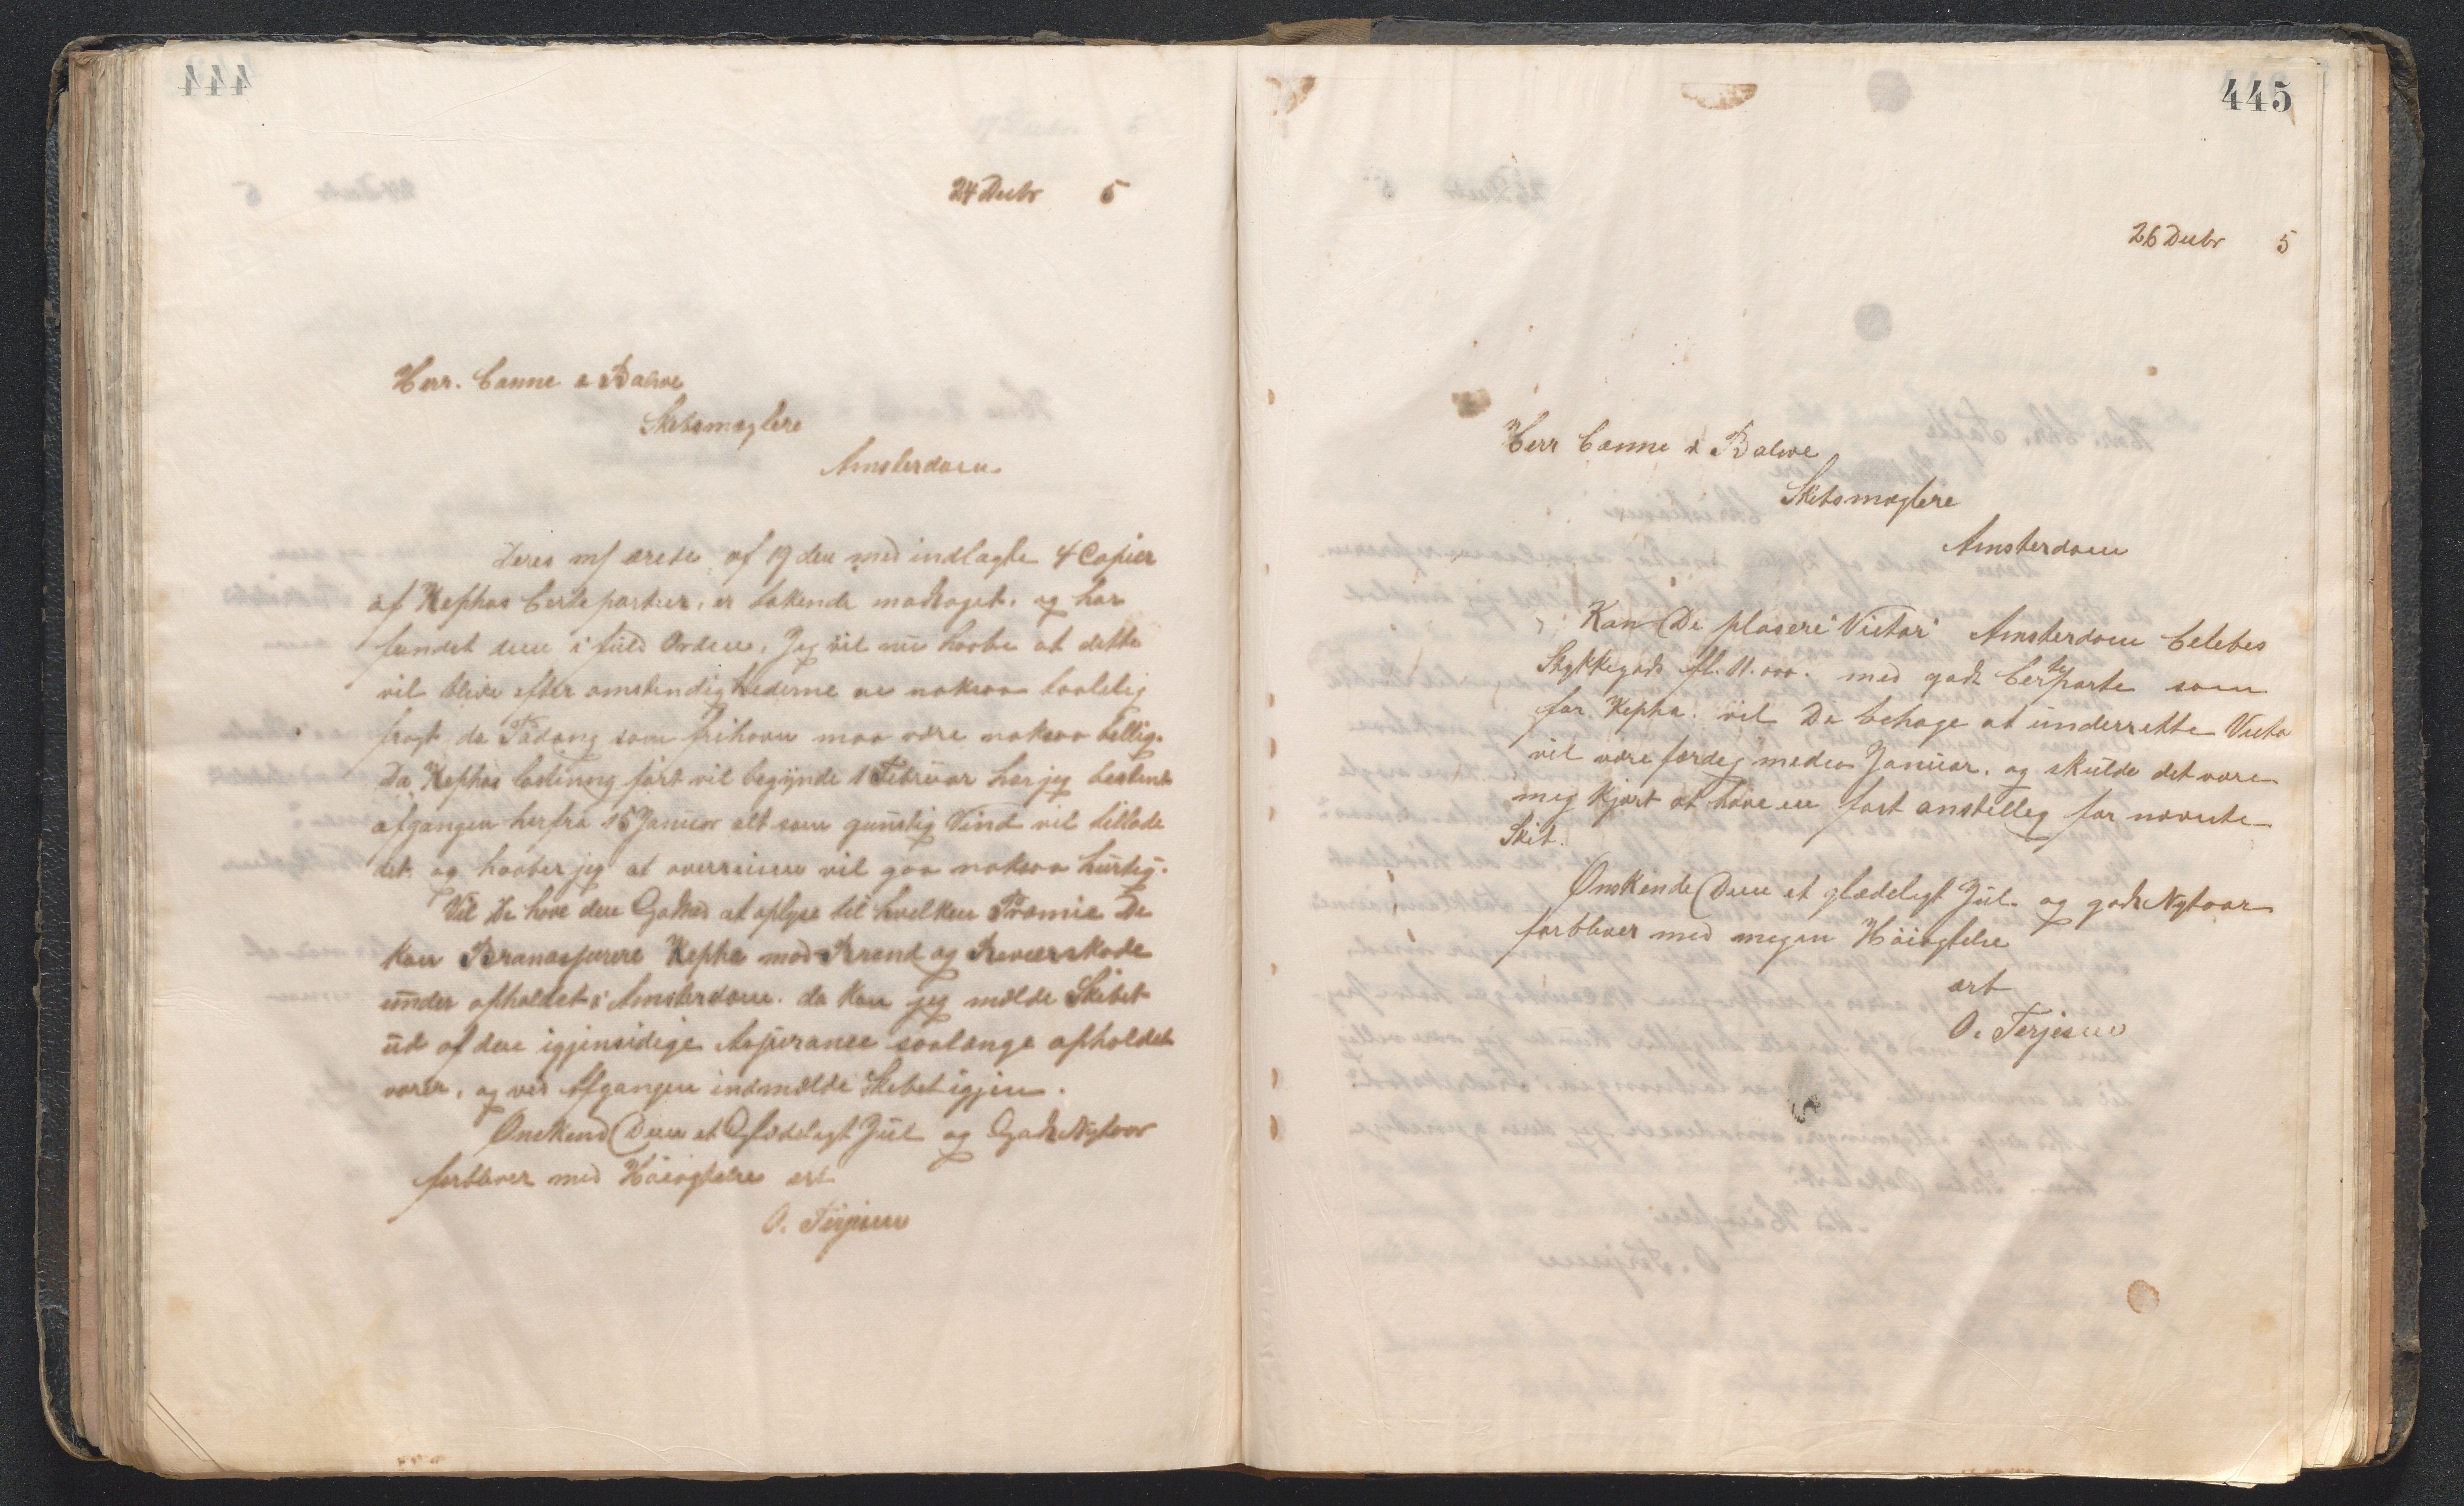 444
24 Decbr 5
Herr. Canne & Balwe
Skibsmæglere
Amsterdam
Deres mf ærede af 19 den med indlagte 4 Copier
af Kephas Certepartier, er takende modtaget, og har
fundet dem i fuld Orden. Jeg vil nu haabe at dette
vil blive efter omstendighederne en noksaa taalelig
fragt, da Padang som frihavn maa være noksaa billig.
Da Kephas ladning først vil begynde 1 Februar har jeg bestemt
afgangen herfra 15 Januar alt som gunstig Vind vil tillade
det, og haaber jeg at overreisen vil gaa noksaa hurtig.
Vil De have den Godhed at oplyse til hvilken Præmie De
kan Brandassurere Kepha mod Brand og Havneskade
under opholdet i Amsterdam. da kan jeg mælde Skibet
ud af den igjensidige Assurance saalænge opholdet
varer, og ved Afgangen indmælde Skibet igjen.
Ønskend Dem et Glædeligt Jul og Godt Nytaar
forbliver med Höiagtelse ærb
O. Terjesen
445
26 Decbr 5
Herr Canne & Balwe
Skibsmæglere
Amsterdam
Kan De plasere "Victor" Amsterdam Celebes
Stykkegods fl. 11.000. med godt Certeparte som
for Kepha. vil De behage at underrette Victo
vil være færdig meden Januar. og skulde det være
mig kjært at have en fast anstilleg for nævnte
Skib.
Ønskende Dem et glædeligt Jul og godt Nytaar
forbliver med megen Höiagtelse
ærb
O. Terjesen